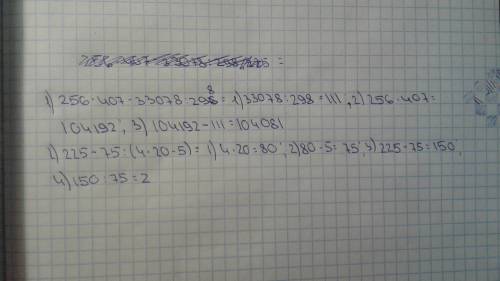 1) 256·407-33078:298= 1) 33078:298=111, 2) 256·407=
104192; 3) 104192-111=104081
2) 225-75:(4·20-5)= 1) 4·20=80; 2) 80-5=75; 3) 225-75=150;
4) 150:75=2